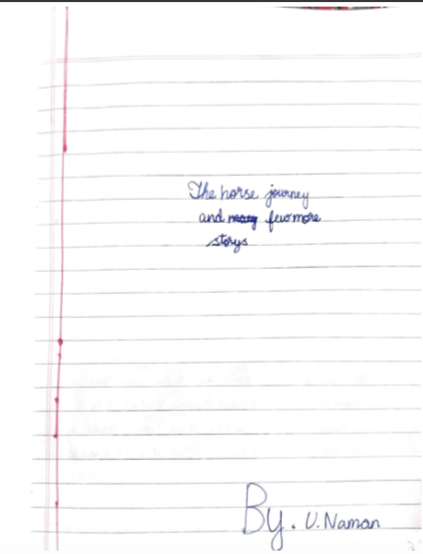 The horse journey
and many few more
storys
By. U. Naman